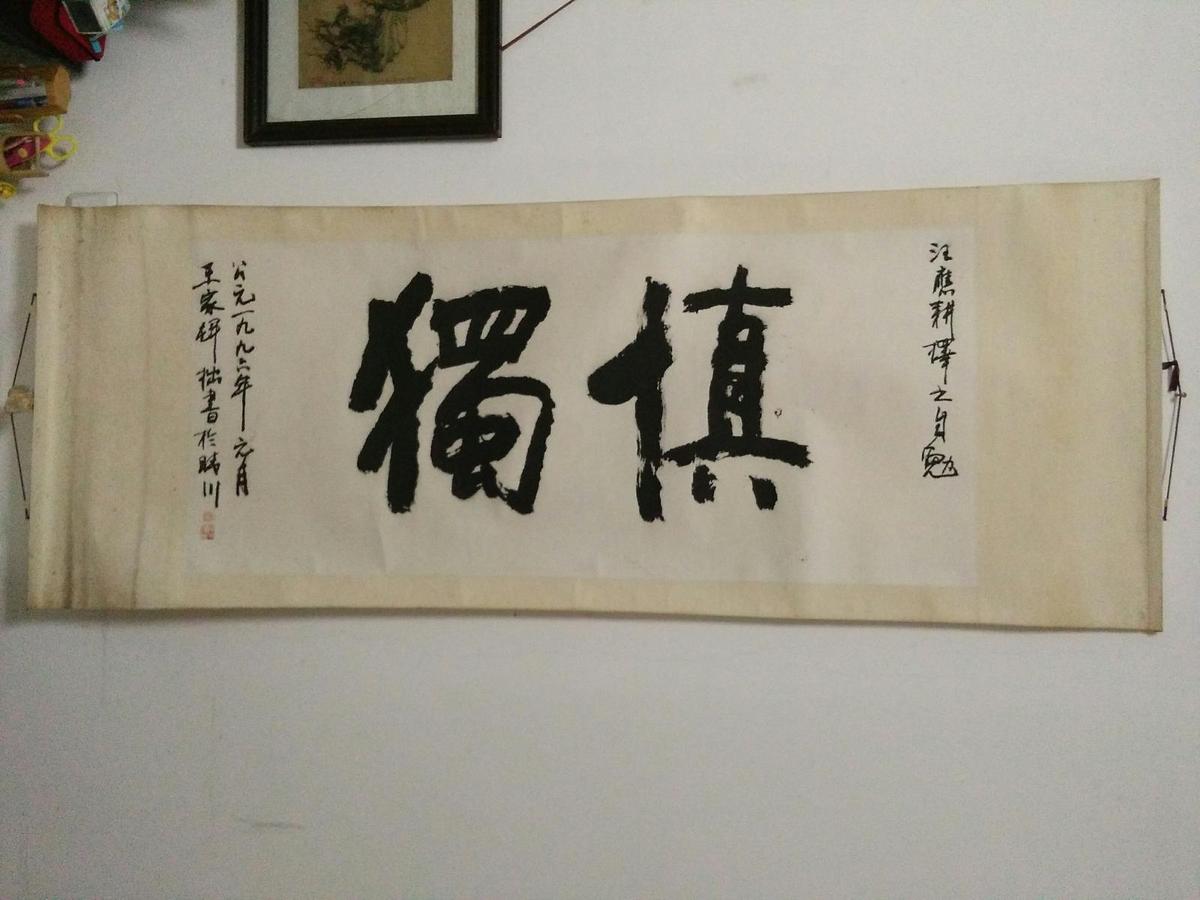 汪應耕擇之自勉
慎獨
公元一九九六年元月
王家鋅拙書於晴川